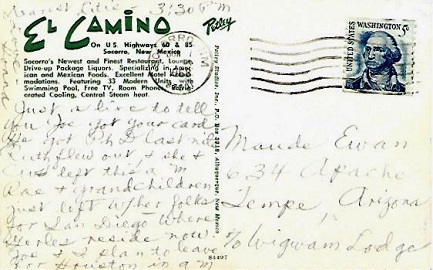 3/30 P M
EL CAMINO
On U.S. Highways 60 & 85
Socorro, New Mexico
Socorro's Newest and Finest Restaurant, Lounge,
Drive-up Package Liquors. Specializing in American
and Mexican Foods. Excellent Motel Accommodations.
Featuring 33 Modern Units with
Swimming Pool, Free TV, Room Phones, Refrigerated
Cooling, Central Steam heat.
Petley
Petley Studios, Inc., P.O. Box 2918, Albuquerque, New Mexico
WASHINGTON 5¢
Just a line to tell
you Joe got your card
We got
Ruth flew out & she &
left this a m
Mae & grandchildren
just left w/her folks
for San Diego where
reside now.
Joe & I plan to leave
for Houston in a m
Maude Ewan
634 Apache
Tempe Arizona
c/o Wigwam Lodge